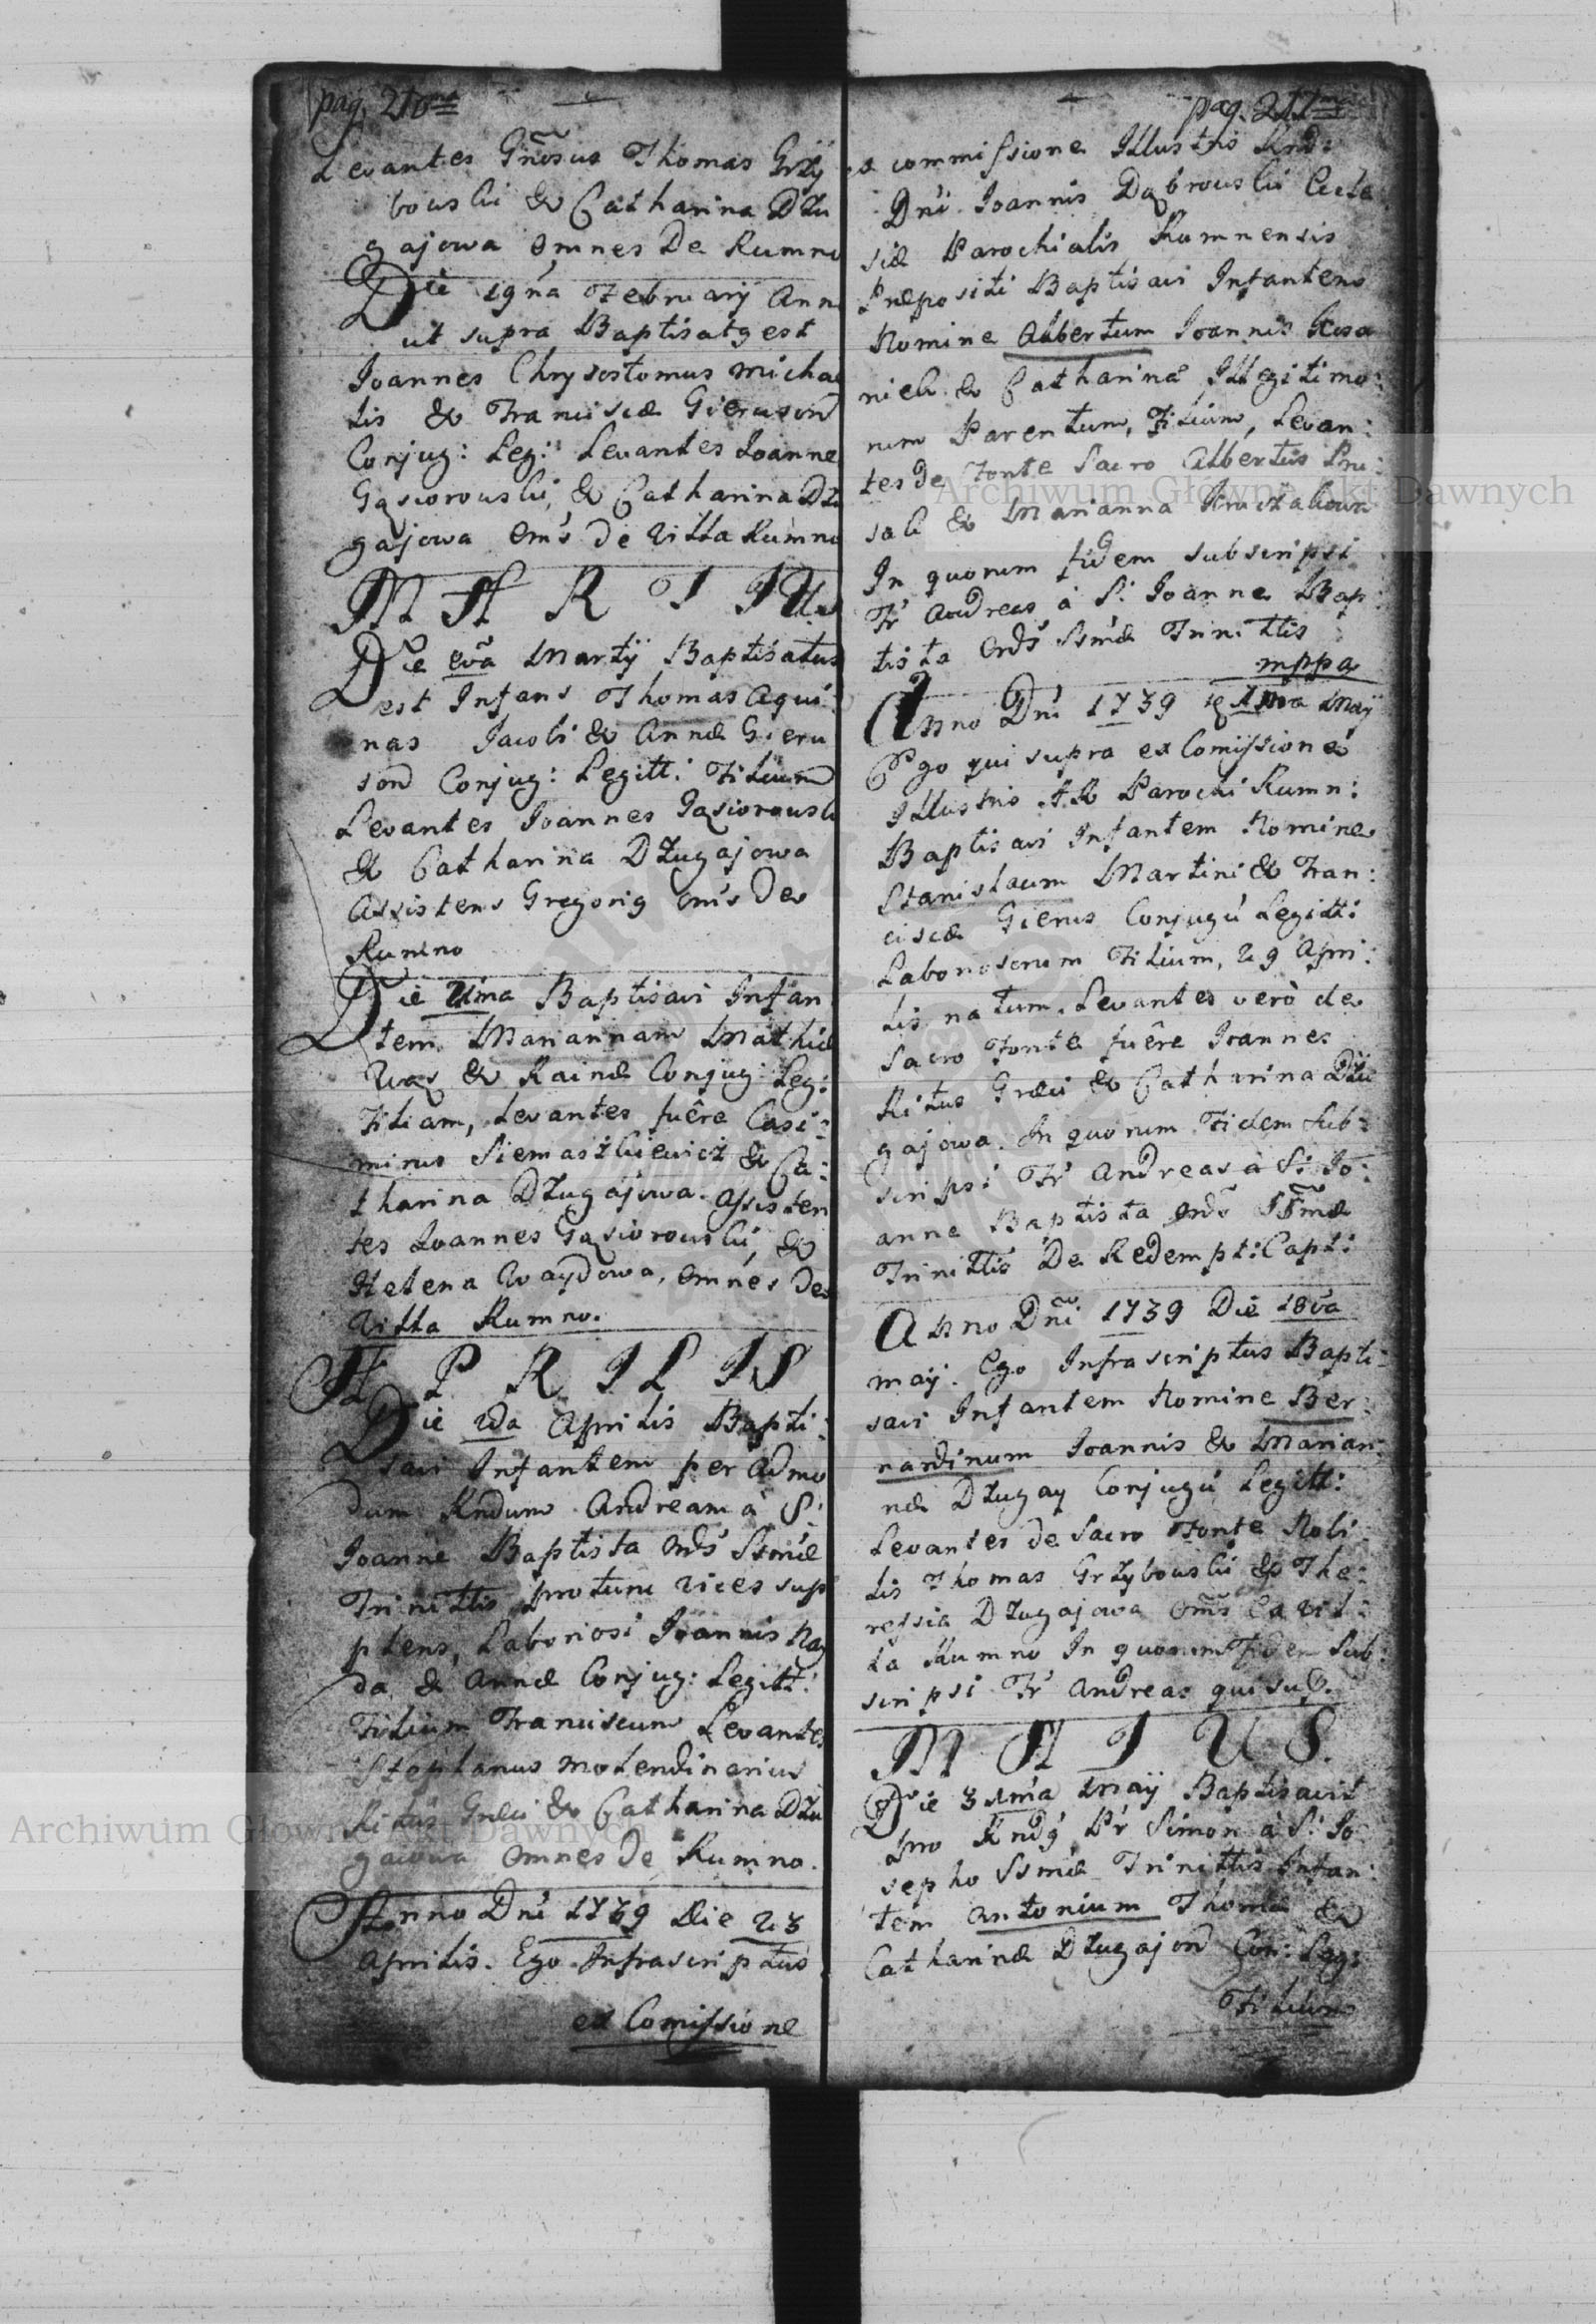 pag. 216ta
Levantes Gnosus Thomas Grzy
bouski & Catharina Dłu
gajowa Omnes De Rumno
Die 19na February Ann
ut supra Baptisatg est
Joannes Chrysostomus Micha
lis & Franciscæ Gierusow
Conjug: Leg: Levantes Joanne
Gąsiorouski, & Catharina Dł
gajowa Om's de Villa Rumno
MARTIUs
Die Martij Baptisatus
est Infans Thomas Aqui:
nas Jacobi & Annæ Gieru
sow Conjug: Legitt: Filium
Levantes Joannes Gąsiorousk
& Catharina Długajowa
Assistens Gregorig Om's De
Rumno
Die Baptisavi Infan
tem Mariannam Mathiæ
Wąs & Rainæ Conjug: Leg:
Filiam, Levantes fuêre Casi:
mirus Siemaszkiewicz & Ca:
tharina Długajowa. Assisten
tes Joannes Gąsiorouski, &
Helena Waydowa, Omnes De
Villa Rumno.
APRILIS
Die 2da Aprilis Bapti:
savi Infantem per Admo
dum Rndum Andream à S:
Joanne Baptista Ord's Ssmæ
Trinittis protunc vices sup
plens, Laboriosi Joannis
da & Annæ Conjug: Legitt:
Filium Franciscum Levantes
Stephanus Molendinarius
Ritus Græci & Catharina Dłu
gaiowa Omnes de Rumno.
Anno Dni 1739 Die 23
Aprilis. Ego Infrascriptus
ex Comissione
pag. 217ma
ex commissione Illustris Rndi
Dni Joannis Dąbrouski Eccle
siæ Parochialis Rumnensis
Præpositi Baptisavi Infantem
Nomine Albertum Joannis
& Catharinæ Illegitimo:
rum Parentum, Filium, Levan:
tes de Fonte Sacro Albertus Pru:
sak & Marianna
In quorum fidem subscripsi
Fr Andreas à S: Joanne Bap:
tista Ord's Ssmæ Trinittis
mppa
Anno Dni 1739 May
Ego qui supra ex Comissione
Illustris A.R Parochi Rumn:
Baptisavi Infantem Nomine
Stanislaum Martini & Fran:
ciscæ Gierus Conjugu Legitt:
Laboriosorum Filium, 29 Apri:
lis natum. Levantes verò de
Sacro Fonte fuêre Joannes
Ritus Græci & Catharina Dłu
gajowa. In quorum Fidem Sub:
scripsi Fr Andreas à S: Jo:
anne Baptista Ord's SSmæ
Trinittis De Redempt: Capt:
Anno Dni 1739 Die 18va
May. Ego Infrascriptus Bapti:
savi Infantem Nomine Ber:
nardinum Joannis & Marian:
næ Długay Conjugu Legitt:
Levantes de Sacro Fonte Nobi:
lis Thomas Grzybouski & The:
ressia Długajowa Om's ex Vil:
la Rumno In quorum Fidem Sub:
scripsi Fr Andreas qui sup.
MAIUS.
Die 31ma May Baptisavit
Rndg Pr Simon à S: Jo
sepho Ssmæ Trinittis Infan:
tem Antonium Thomæ &
Catharinæ Długajow Con: Leg:
Filium